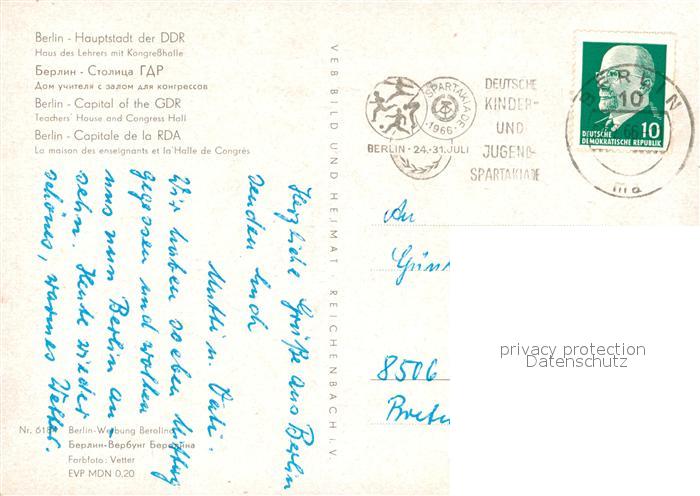 Berlin - Hauptstadt der DDR
Haus des Lehrers mit Kongreßhalle
Берлин - Столица ГДР
Дом учителя с залом для конгрессов
Berlin - Capital of the GDR
Teachers' House and Congress Hall
Berlin - Capitale de la RDA
La maison des enseignants et la Halle de Congrès
VEB BILD UND HEIMAT · REICHENBACH i. V.
SPARTAKIADE
1966
BERLIN · 24.-31. JULI
DEUTSCHE
KINDER-
UND
JUGEND-
SPARTAKIADE
BERLIN
10
DEUTSCHE 10
DEMOKRATISCHE REPUBLIK
ma
Herzliche Grüße aus Berlin
senden Euch
Mutti u. Vati.
Wir haben soeben Mittag
gegessen und wollen
uns nun Berlin an-
sehn. Heute wieder
schönes, warmes Wetter.
An
8506
privacy protection
Datenschutz
Berlin-Werbung Berolina
Берлин-Вербунг Беролина
Farbfoto: Vetter
EVP MDN 0,20